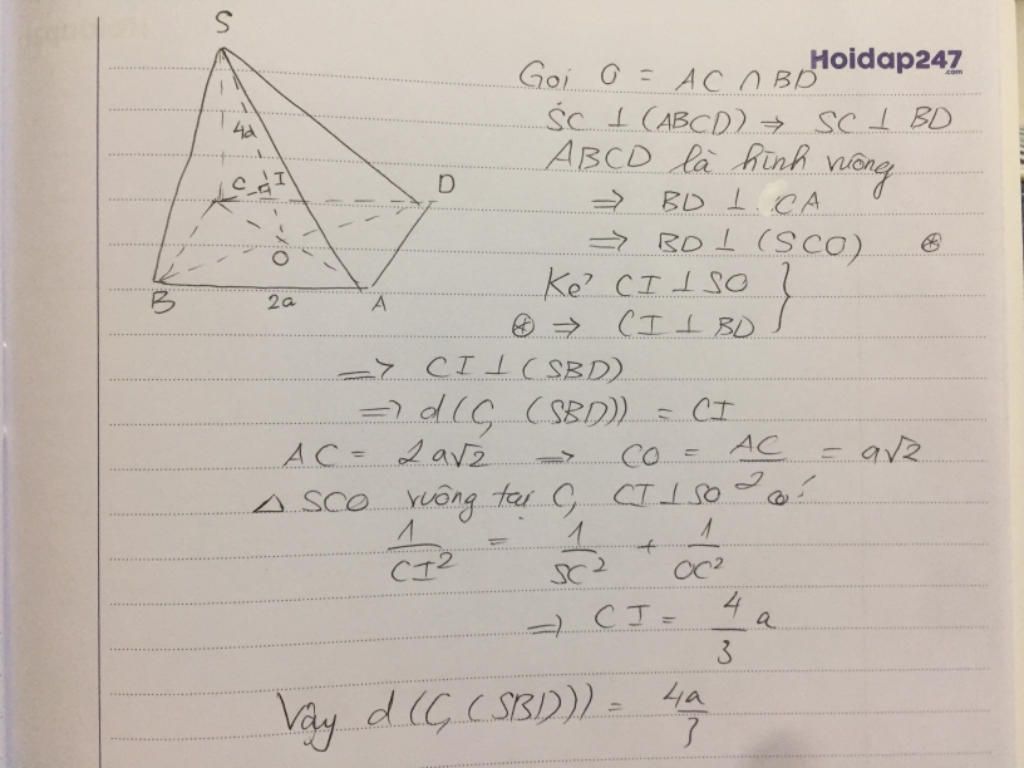 S
4a
C
I
D
O
B
2a
A
Hoidap247
.com
Gọi O = AC ∩ BD
SC ⊥ (ABCD) ⇒ SC ⊥ BD
ABCD là hình vuông
⇒ BD ⊥ CA
⇒ BD ⊥ (SCO) ⊛
Kẻ CI ⊥ SO }
⊛ ⇒ CI ⊥ BD
⇒ CI ⊥ (SBD)
⇒ d(C, (SBD)) = CI
AC = 2a√2 ⇒ CO = AC/2 = a√2
△ SCO vuông tại C, CI ⊥ SO có:
1/CI² = 1/SC² + 1/OC²
⇒ CI = 4/3 a
Vậy d(C, (SBD))) = 4a/3